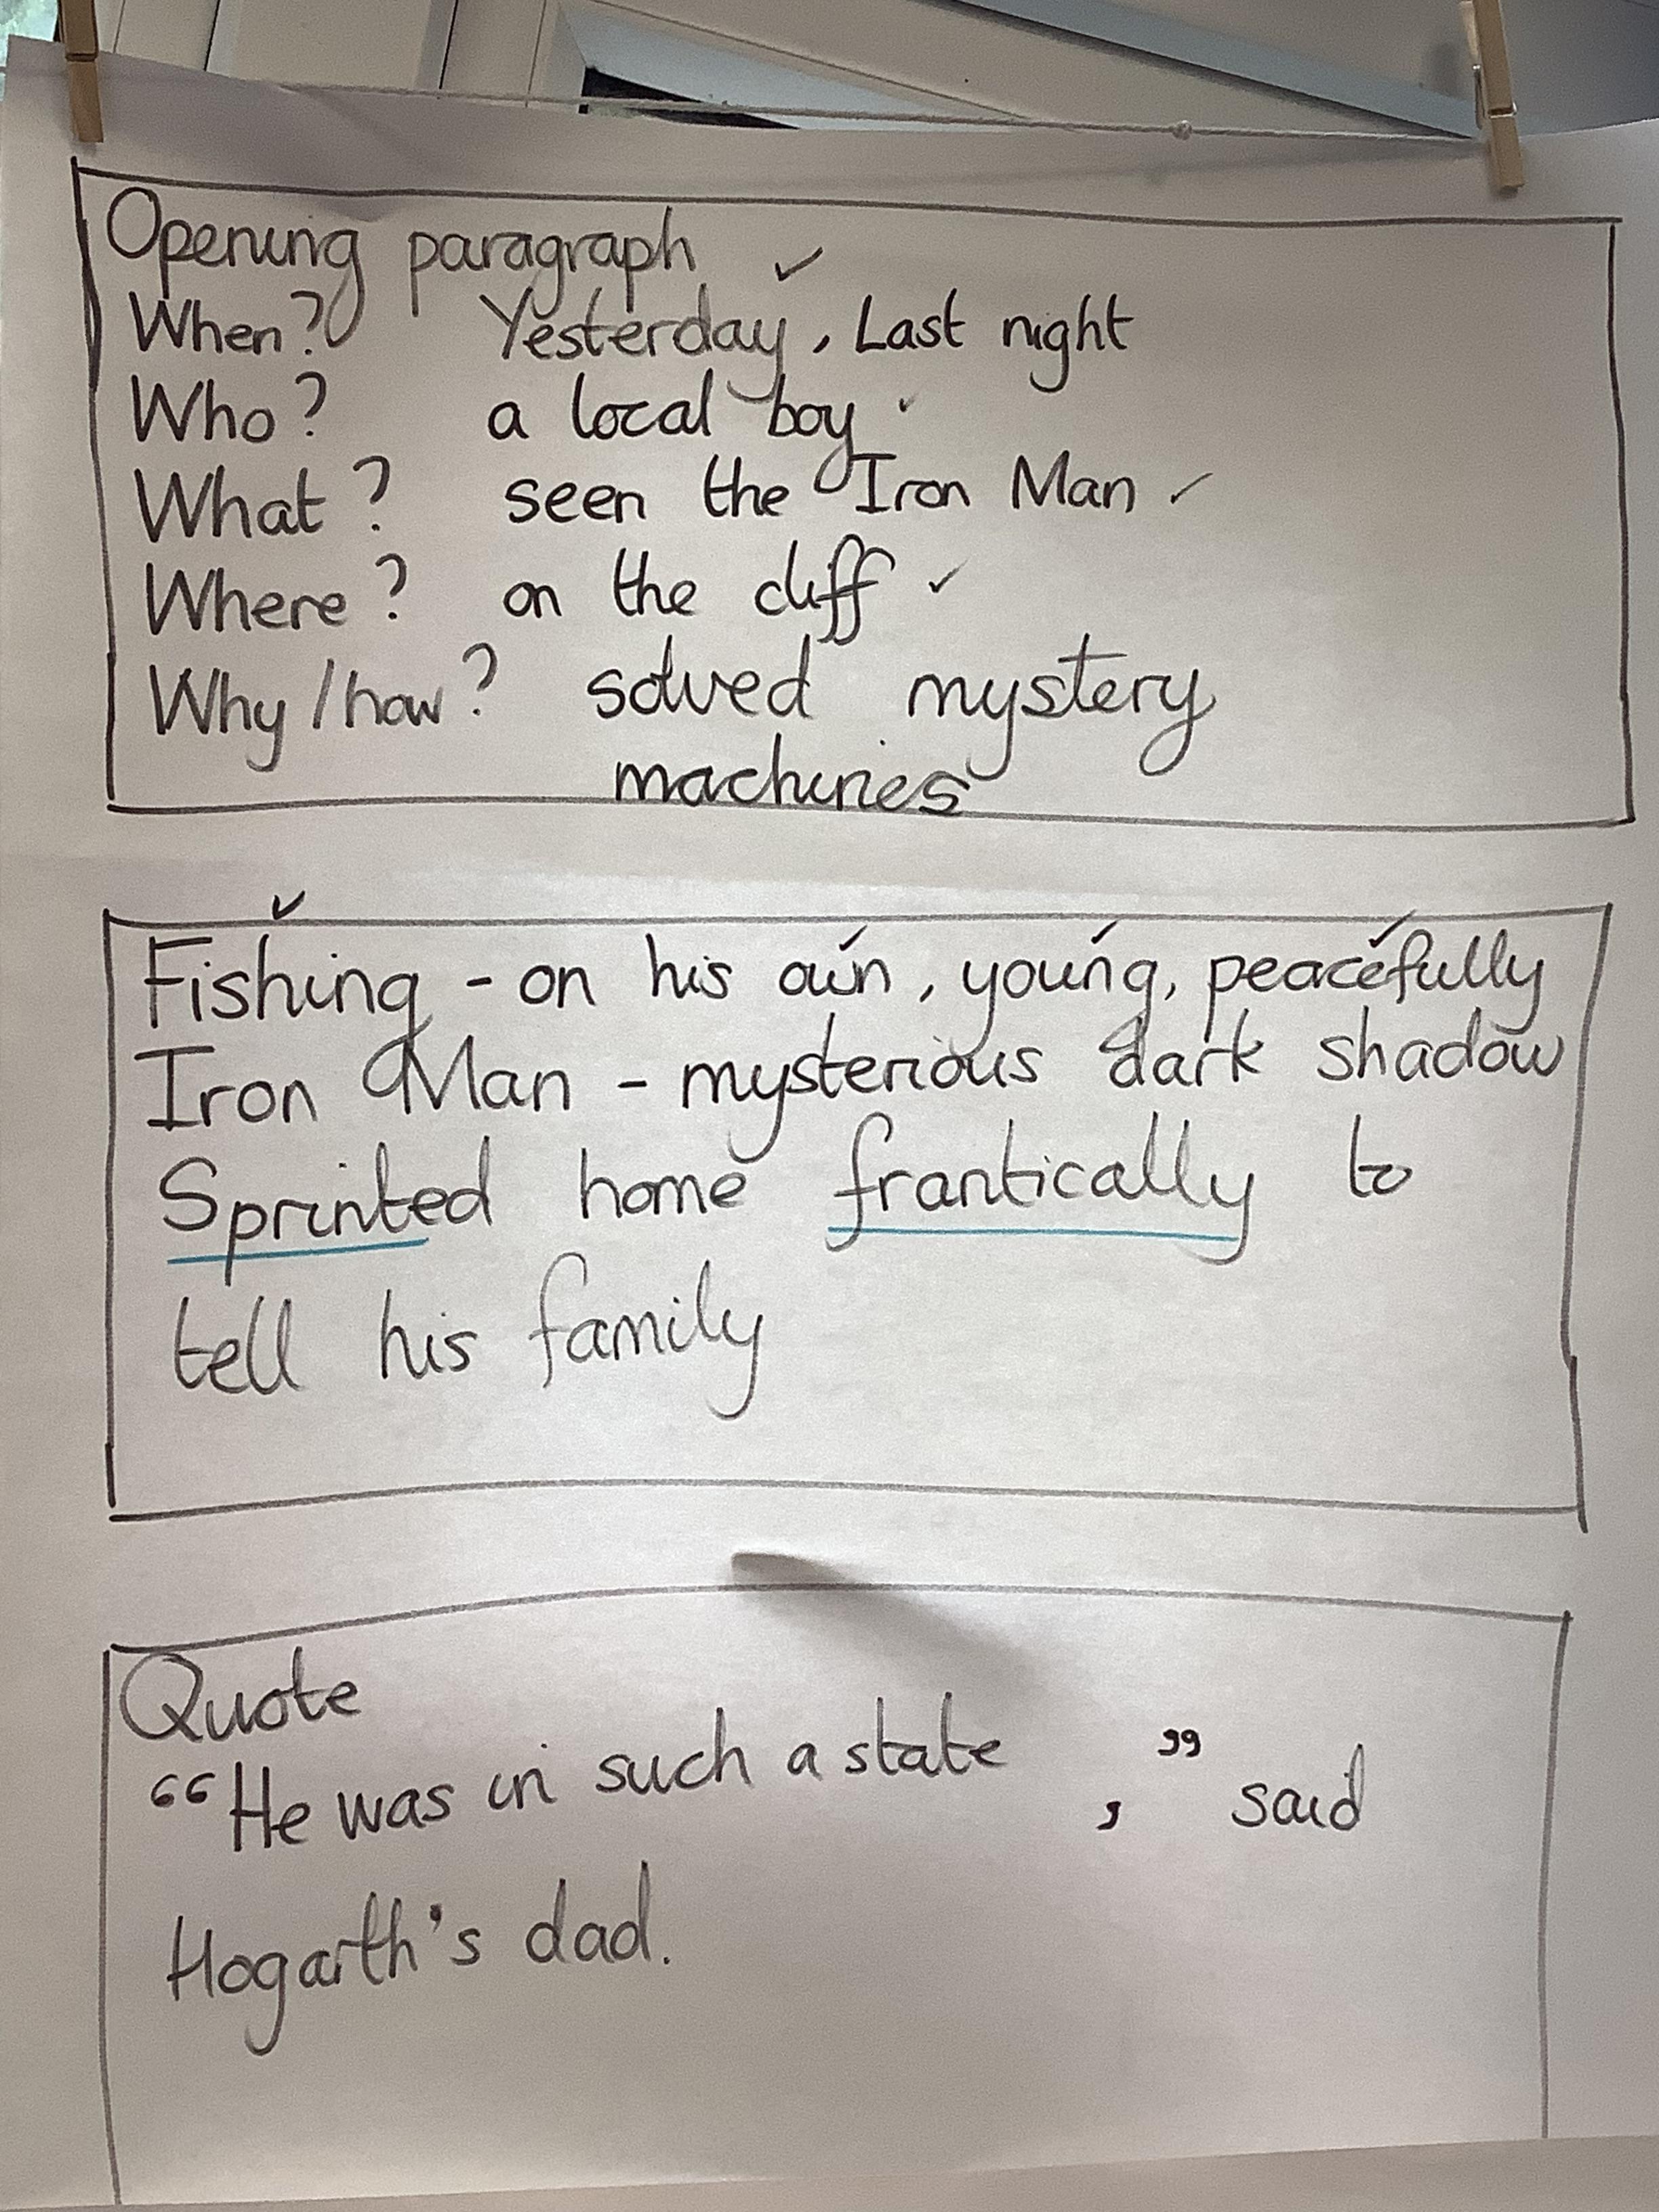 Opening paragraph ✓
When? Yesterday, Last night
Who? a local boy ✓
What? seen the Iron Man ✓
Where? on the cliff ✓
Why/how? solved mystery
machines
Fishing - on his own, young, peacefully
Iron Man - mysterious dark shadow
Sprinted home frantically to
tell his family
Quote
“He was in such a state ,” said
Hogarth's dad.